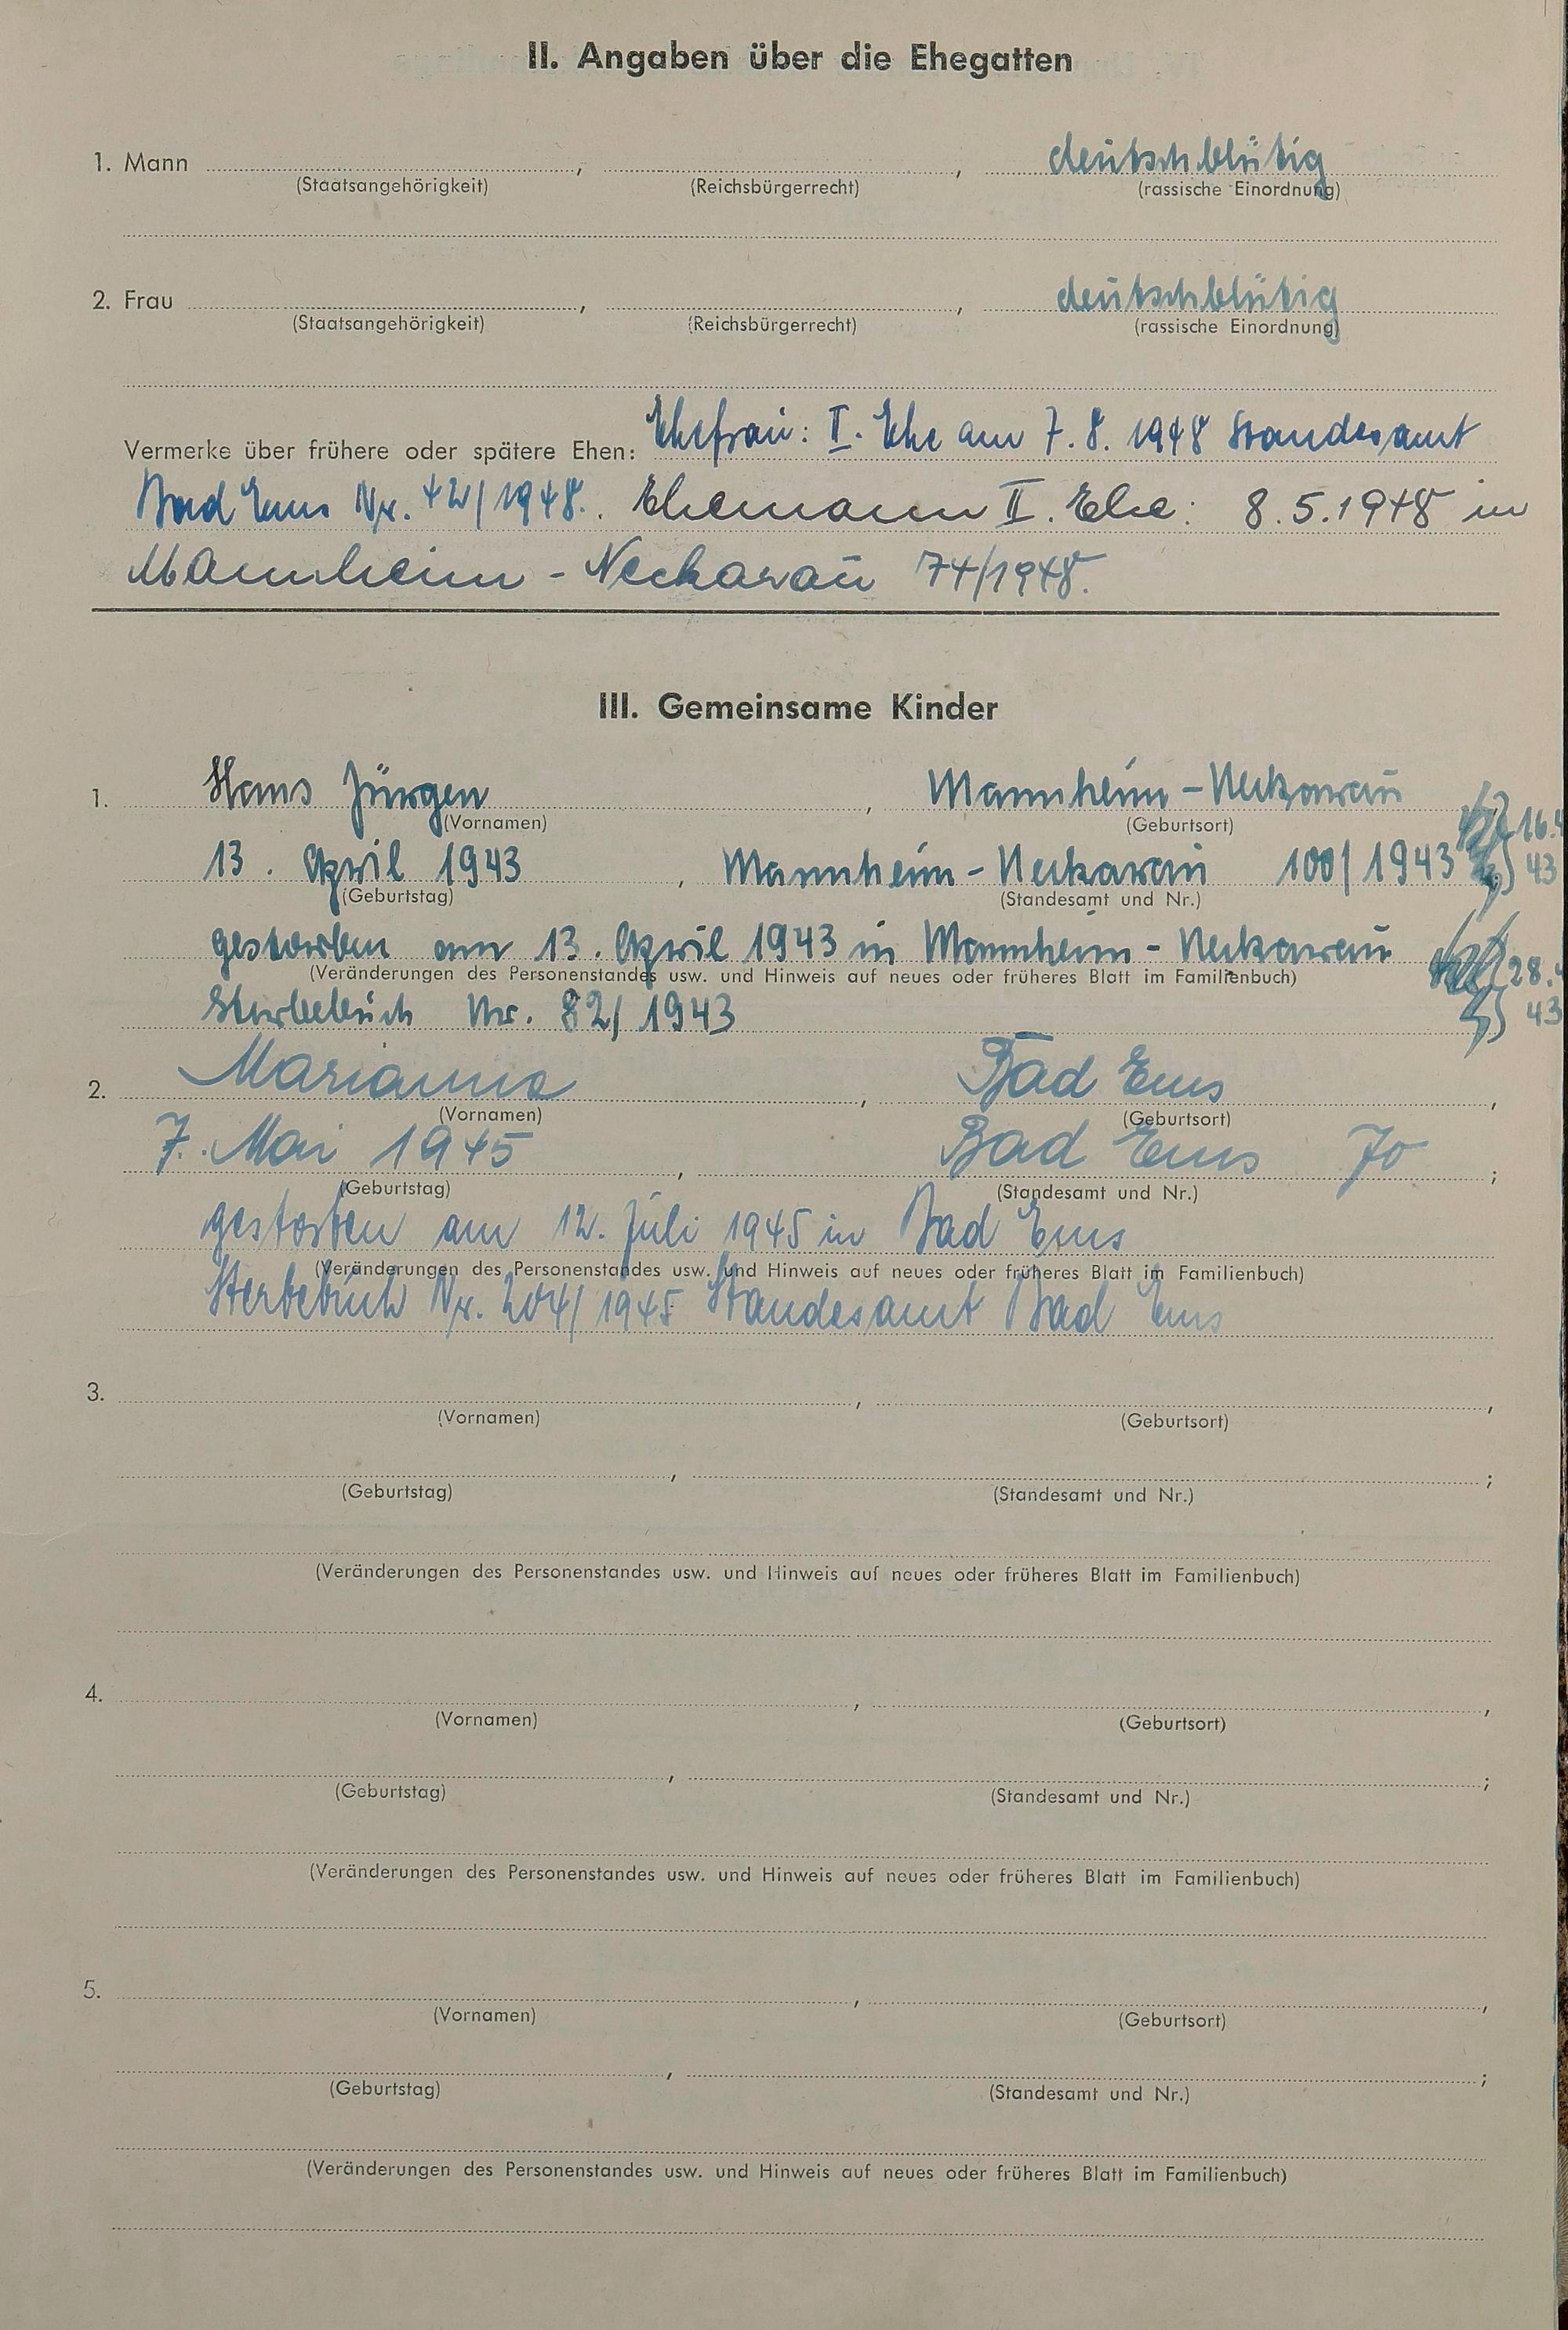 II. Angaben über die Ehegatten
1. Mann , , deutschblütig
(Staatsangehörigkeit) (Reichsbürgerrecht) (rassische Einordnung)
2. Frau , , deutschblütig
(Staatsangehörigkeit) (Reichsbürgerrecht) (rassische Einordnung)
Vermerke über frühere oder spätere Ehen: Ehefrau: II. Ehe am 7.8.1948 Standesamt
Bad Ems Nr. 42/1948. Ehemann II. Ehe: 8.5.1948 in
Mannheim - Neckarau 74/1948.
III. Gemeinsame Kinder
1. Hans Jürgen , Mannheim-Neckarau
(Vornamen) (Geburtsort)
16.
13. April 1943 , Mannheim-Neckarau 100/1943 43
(Geburtstag) (Standesamt und Nr.)
gestorben am 13. April 1943 in Mannheim-Neckarau
(Veränderungen des Personenstandes usw. und Hinweis auf neues oder früheres Blatt im Familienbuch) 28.
Sterbebuch Nr. 82/1943 43
2. Marianne , Bad Ems ,
(Vornamen) (Geburtsort)
7. Mai 1945 , Bad Ems 70 ;
(Geburtstag) (Standesamt und Nr.)
gestorben am 12. Juli 1945 in Bad Ems
(Veränderungen des Personenstandes usw. und Hinweis auf neues oder früheres Blatt im Familienbuch)
Sterbebuch Nr. 204/1945 Standesamt Bad Ems
3. , ,
(Vornamen) (Geburtsort)
, ;
(Geburtstag) (Standesamt und Nr.)
(Veränderungen des Personenstandes usw. und Hinweis auf neues oder früheres Blatt im Familienbuch)
4. , ,
(Vornamen) (Geburtsort)
, ;
(Geburtstag) (Standesamt und Nr.)
(Veränderungen des Personenstandes usw. und Hinweis auf neues oder früheres Blatt im Familienbuch)
5. , ,
(Vornamen) (Geburtsort)
, ;
(Geburtstag) (Standesamt und Nr.)
(Veränderungen des Personenstandes usw. und Hinweis auf neues oder früheres Blatt im Familienbuch)